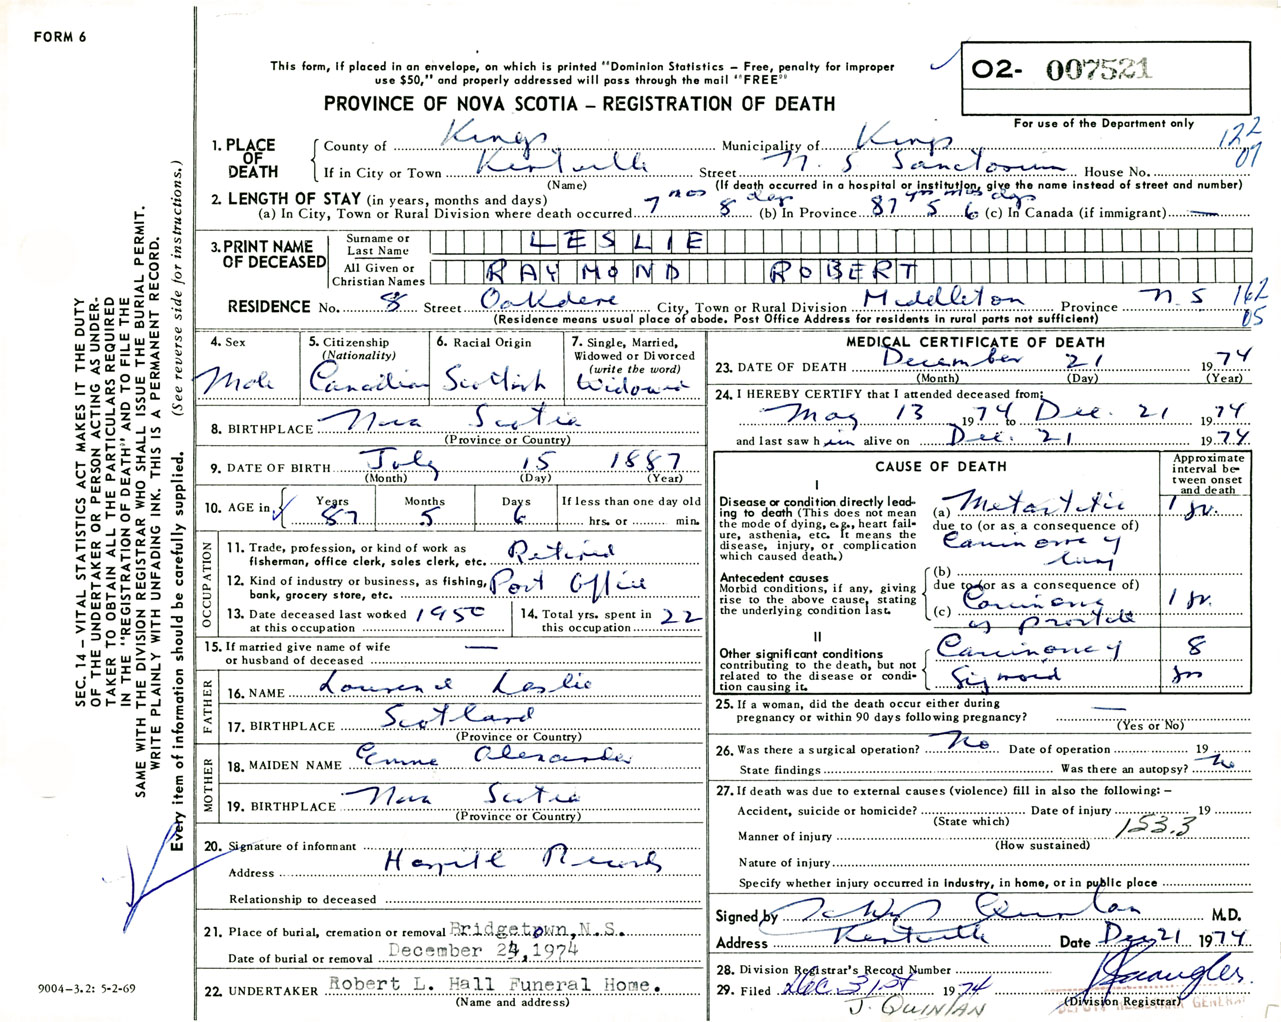 FORM 6
This form, if placed in an envelope, on which is printed "Dominion Statistics – Free, penalty for improper
use $50," and properly addressed will pass through the mail "FREE"
PROVINCE OF NOVA SCOTIA – REGISTRATION OF DEATH
O2- 007521
For use of the Department only
122
07
1. PLACE OF DEATH
County of Kings Municipality of Kings
If in City or Town Kentville Street N. S Sanctorium House No.
(Name) (If death occurred in a hospital or institution, give the name instead of street and number)
2. LENGTH OF STAY (in years, months and days)
(a) In City, Town or Rural Division where death occurred 7 mos 8 days (b) In Province 87 yrs 5 mos 6 dys (c) In Canada (if immigrant) —
3. PRINT NAME OF DECEASED
Surname or Last Name LESLIE
All Given or Christian Names RAYMOND ROBERT
RESIDENCE No. 8 Street Oakdene City, Town or Rural Division Middleton Province N. S
162
05
(Residence means usual place of abode. Post Office Address for residents in rural parts not sufficient)
4. Sex
Male
5. Citizenship
(Nationality)
Canadian
6. Racial Origin
Scottish
7. Single, Married,
Widowed or Divorced
(write the word)
Widowed
8. BIRTHPLACE Nova Scotia
(Province or Country)
9. DATE OF BIRTH July 15 1887
(Month) (Day) (Year)
10. AGE in
Years Months Days If less than one day old
87 5 6 hrs. or min.
OCCUPATION
11. Trade, profession, or kind of work as
fisherman, office clerk, sales clerk, etc. Retired
12. Kind of industry or business, as fishing,
bank, grocery store, etc. Post Office
13. Date deceased last worked
at this occupation 1950
14. Total yrs. spent in
this occupation 22
15. If married give name of wife
or husband of deceased —
FATHER
16. NAME Lourence Leslie
17. BIRTHPLACE Scotland
(Province or Country)
MOTHER
18. MAIDEN NAME Emma Alexander
19. BIRTHPLACE Nova Scotia
(Province or Country)
20. Signature of informant
Hospital Records
Address
Relationship to deceased
21. Place of burial, cremation or removal Bridgetown, N.S.
Date of burial or removal December 24, 1974
22. UNDERTAKER Robert L. Hall Funeral Home.
(Name and address)
MEDICAL CERTIFICATE OF DEATH
23. DATE OF DEATH December 21 1974
(Month) (Day) (Year)
24. I HEREBY CERTIFY that I attended deceased from:
May 13 1974 to Dec. 21 1974
and last saw him alive on Dec. 21 1974
CAUSE OF DEATH
Approximate
interval be-
tween onset
and death
I
Disease or condition directly lead-
ing to death (This does not mean
the mode of dying, e.g., heart fail-
ure, asthenia, etc. It means the
disease, injury, or complication
which caused death.)
(a) Metastatic 1 yr.
due to (or as a consequence of)
Carcinoma of
lung
(b)
Antecedent causes
Morbid conditions, if any, giving
rise to the above cause, stating
the underlying condition last.
due to (or as a consequence of)
(c) Carcinoma 1 yr.
of prostate
II
Other significant conditions
contributing to the death, but not
related to the disease or condi-
tion causing it.
Carcinoma of 8
Sigmoid yrs
25. If a woman, did the death occur either during
pregnancy or within 90 days following pregnancy? —
(Yes or No)
26. Was there a surgical operation? No Date of operation 19
State findings Was there an autopsy? No
27. If death was due to external causes (violence) fill in also the following: –
Accident, suicide or homicide? Date of injury 19
(State which)
153.3
Manner of injury
(How sustained)
Nature of injury
Specify whether injury occurred in industry, in home, or in public place
Signed by Quinlan M.D.
Address Kentville Date Dec 21 1974
28. Division Registrar's Record Number
29. Filed Dec. 31st 1974
(Division Registrar)
DEPUTY REGISTRAR GENERAL
J. QUINLAN
9004-3.2: 5-2-69
SEC. 14 – VITAL STATISTICS ACT MAKES IT THE DUTY
OF THE UNDERTAKER OR PERSON ACTING AS UNDER-
TAKER TO OBTAIN ALL THE PARTICULARS REQUIRED
IN THE "REGISTRATION OF DEATH" AND TO FILE THE
SAME WITH THE DIVISION REGISTRAR WHO SHALL ISSUE THE BURIAL PERMIT.
WRITE PLAINLY WITH UNFADING INK. THIS IS A PERMANENT RECORD.
Every item of information should be carefully supplied. (See reverse side for instructions.)